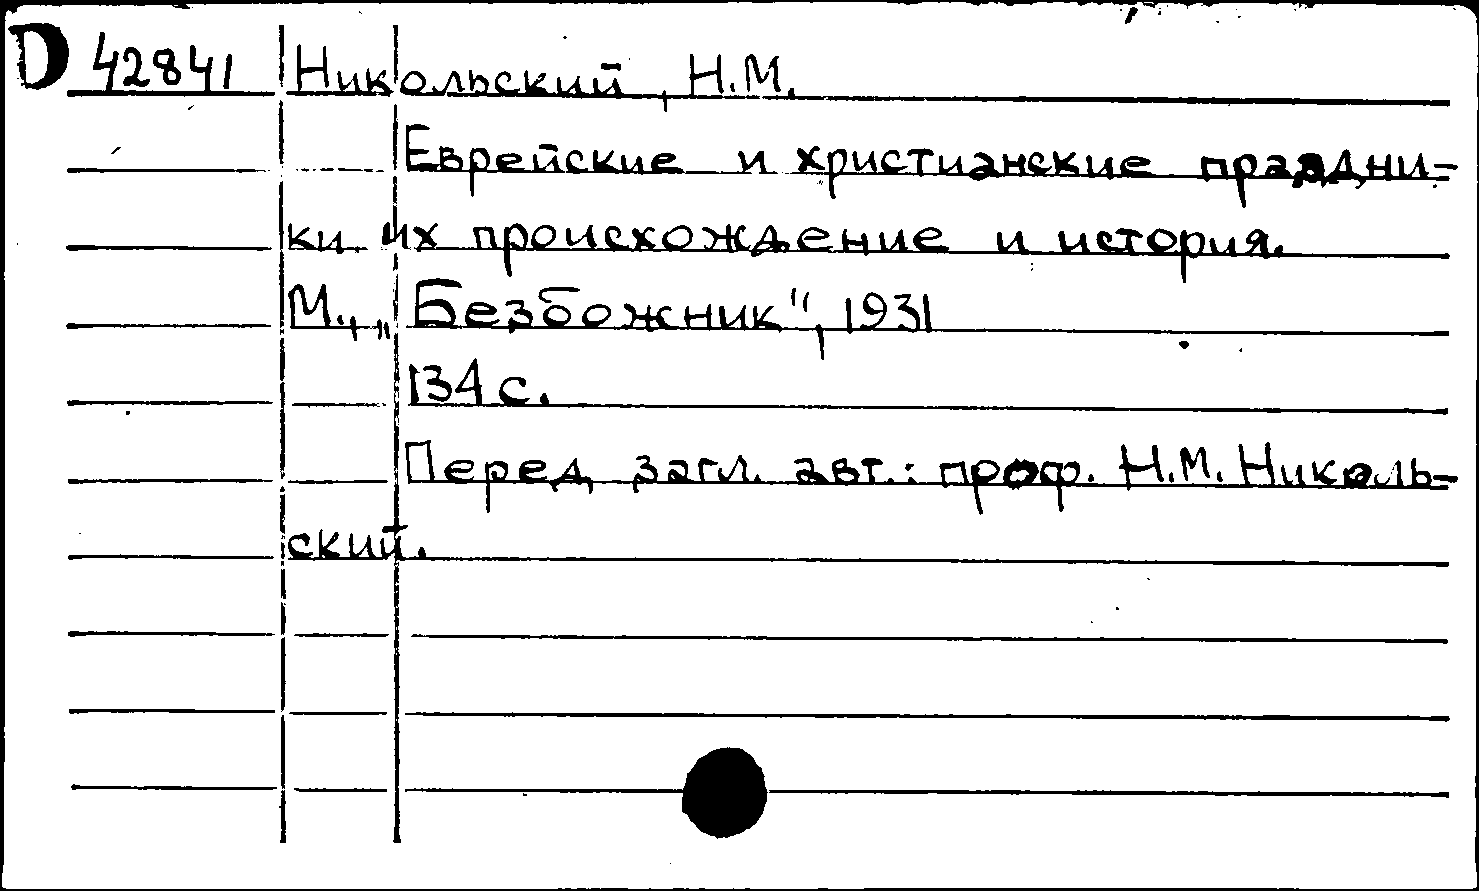 D 42841 Никольский, Н.М.
Еврейские и христианские праздни=
ки их происхождение и история.
М., „Безбожник", 1931
134 с.
Перед загл. авт.: проф. Н.М. Николь=
ский.